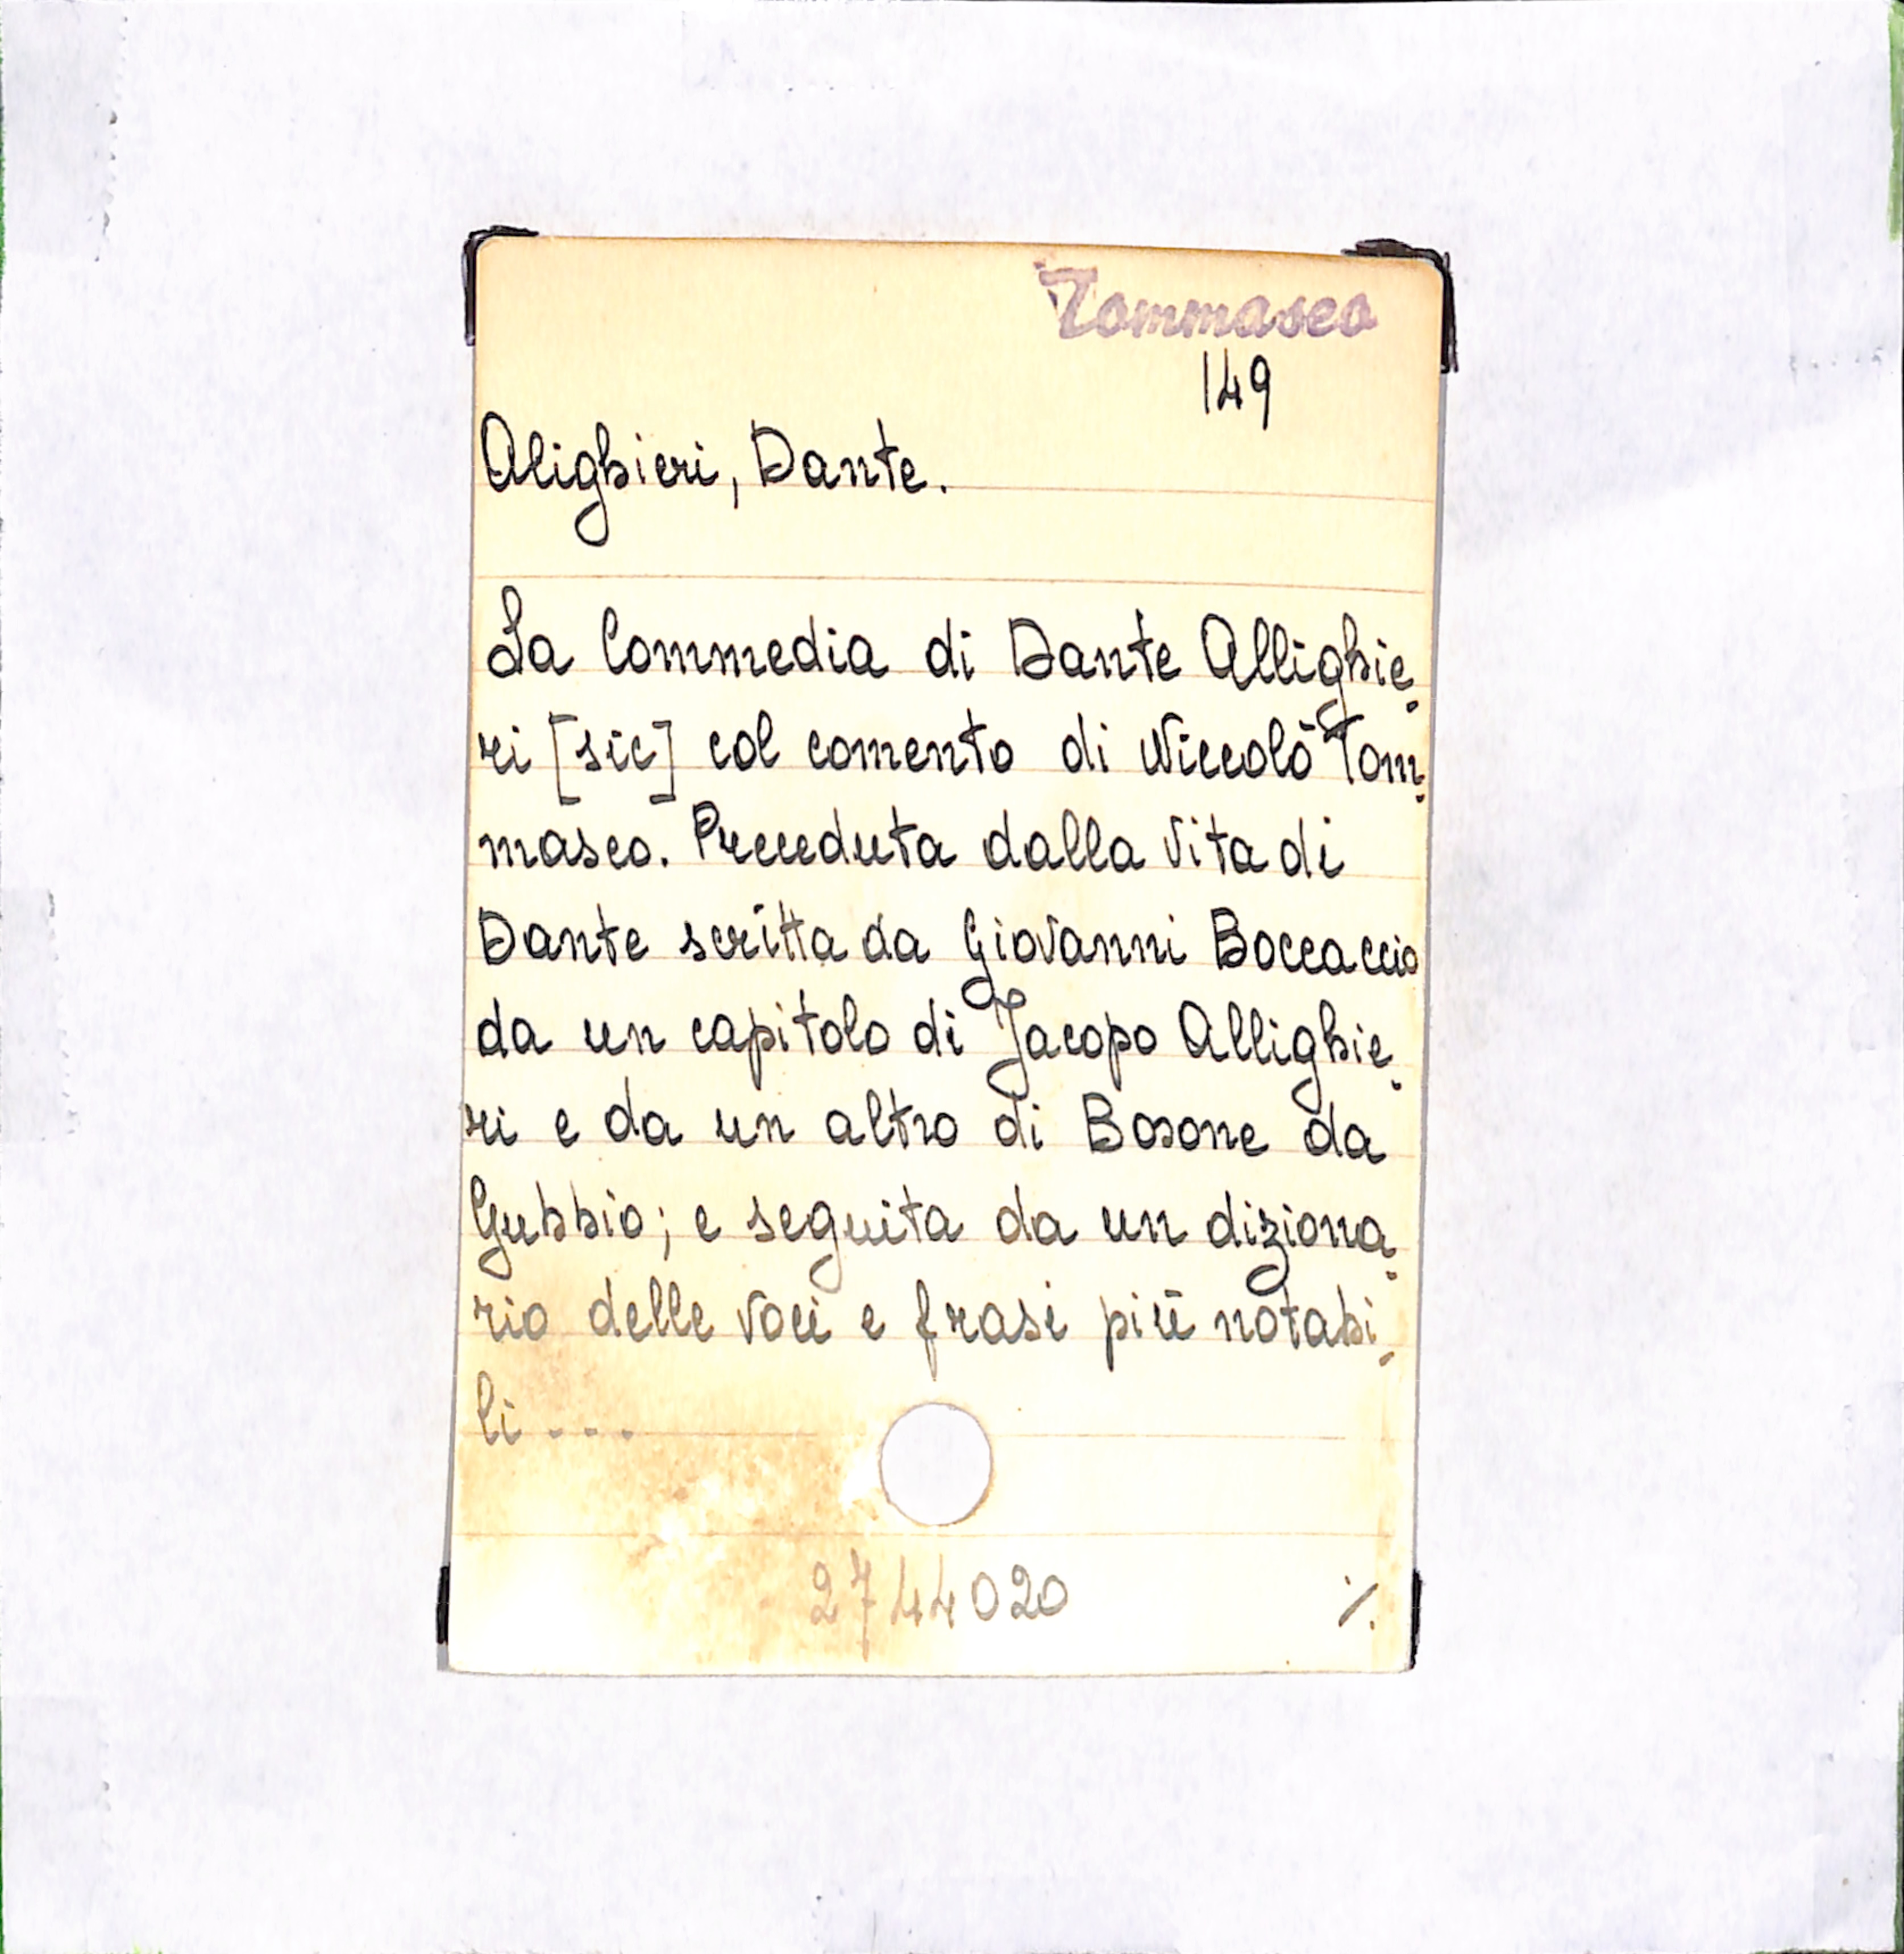 Tommaseo
149
Alighieri, Dante.
La Commedia di Dante Allighie-
ri [sic] col comento di Niccolò Tom-
maseo. Preceduta dalla vita di
Dante scritta da Giovanni Boccaccio
da un capitolo di Jacopo Allighie-
ri e da un altro di Bosone da
Gubbio; e seguita da un diziona-
rio delle voci e frasi più notabi-
li ...
2744020 ./.